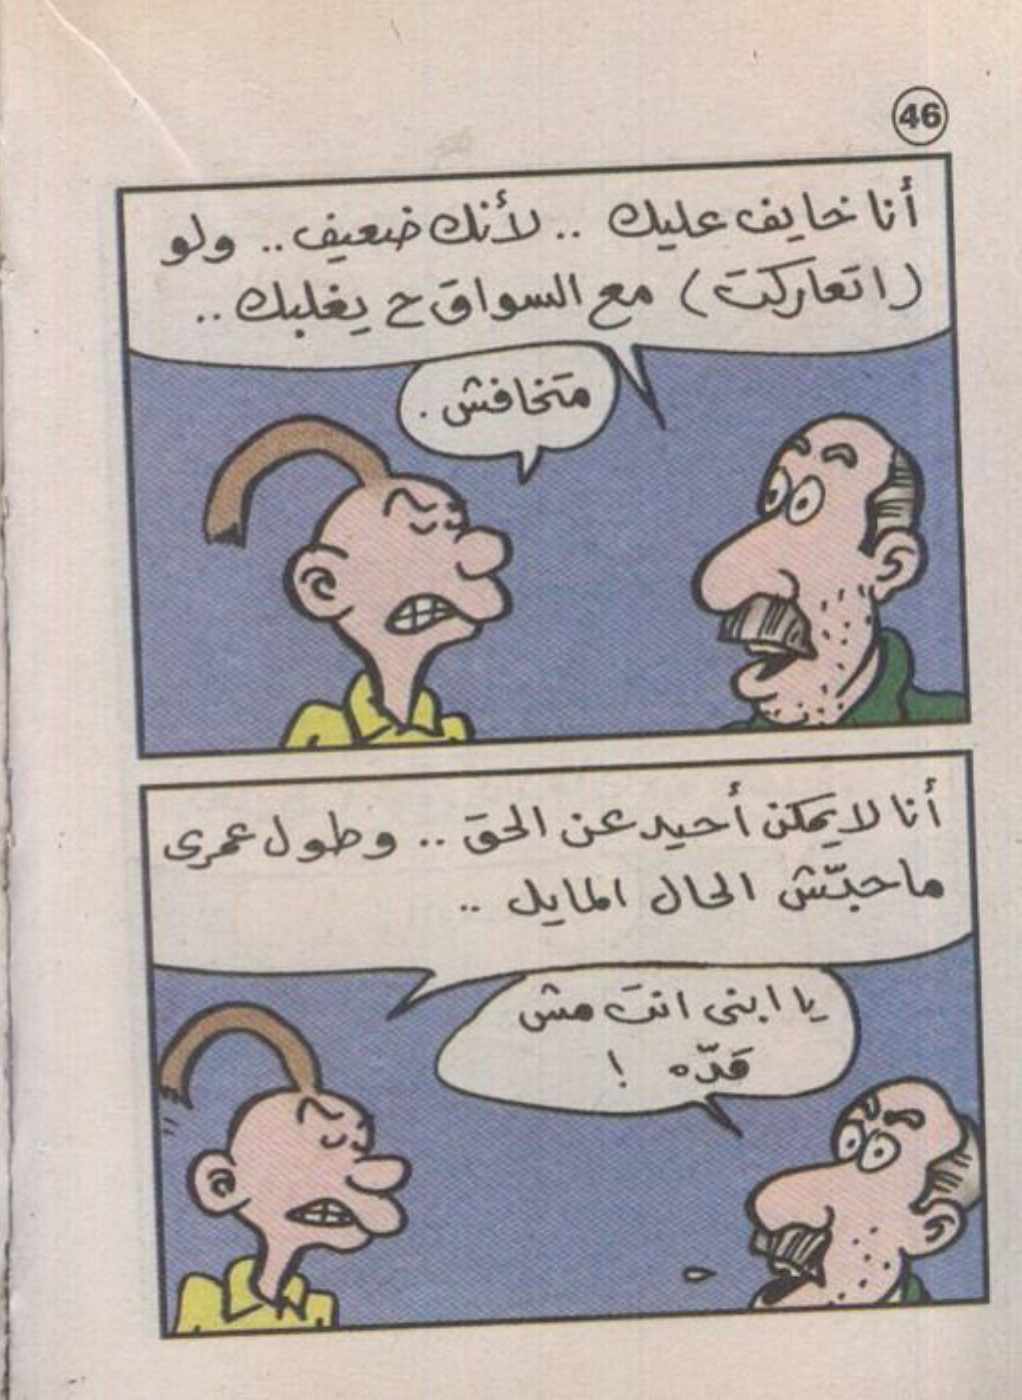 46
أنا خايف عليك .. لأنك ضعيف .. ولو
(اتعاركت) مع السواق ح يغلبك ..
متخافش .
أنا لا يمكن أحيد عن الحق .. وطول عمرى
ماحبّتش الحال المايل ..
يا ابنى انتَ مش
قدّه !